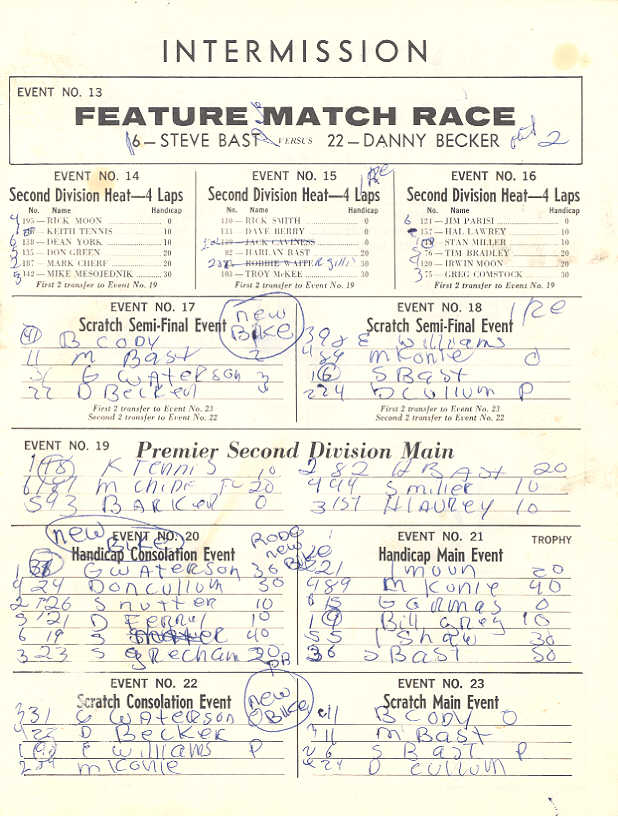 INTERMISSION
EVENT NO. 13
FEATURE MATCH RACE
6—STEVE BAST VERSUS 22—DANNY BECKER 2
EVENT NO. 14
Second Division Heat—4 Laps
No. Name Handicap
195—RICK MOON 0
KEITH TENNIS 10
138—DEAN YORK 10
135—DON GREEN 20
187—MARK CHERF 20
142—MIKE MESOJEDNIK 30
First 2 transfer to Event No. 19
EVENT NO. 15
Second Division Heat—4 Laps
No. Name Handicap
110—RICK SMITH 0
131—DAVE BERRY 0
JACK CAVINESS
82—HARLAN BAST 20
ROBBIE WAITE
103—TROY McKEE 30
First 2 transfer to Event No. 19
EVENT NO. 16
Second Division Heat—4 Laps
No. Name Handicap
6 121—JIM PARISI 0
157—HAL LAWREY 10
STAN MILLER 10
76—TIM BRADLEY 20
120—IRWIN MOON 20
3 75—GREG COMSTOCK 30
First 2 transfer to Event No. 19
EVENT NO. 17
Scratch Semi-Final Event
new BIKE
B CODY
11 M BAST 2
G WATERSON 3
22 D BECKER
First 2 transfer to Event No. 23
Second 2 transfer to Event No. 22
EVENT NO. 18
Scratch Semi-Final Event
E Williams
489 M Konie 0
S BAST
224 D Cullum P
First 2 transfer to Event No. 23
Second 2 transfer to Event No. 22
EVENT NO. 19 Premier Second Division Main
K TENNIS 10
M 20
BARKER 0
2 82 H BAST 20
S Miller 10
3 157 H LAUREY 10
EVENT NO. 20
Handicap Consolation Event
new BIKE
RODE new
G WATERSON 30
4 24 DON CULLUM 50
S nutter 10
D 10
6 19 S 40
3 23 S grecham 20
EVENT NO. 21 TROPHY
Handicap Main Event
I moon 20
489 M Konie 40
G GARMAS 0
Bill grey 10
I Shaw 30
S BAST 50
EVENT NO. 22
Scratch Consolation Event
new BIKE
3 31 G WATERSON 0
4 22 D Becker
E Williams P
M Konie
EVENT NO. 23
Scratch Main Event
B CODY 0
3 11 M BAST
2 6 S BAST P
4 24 D Cullum